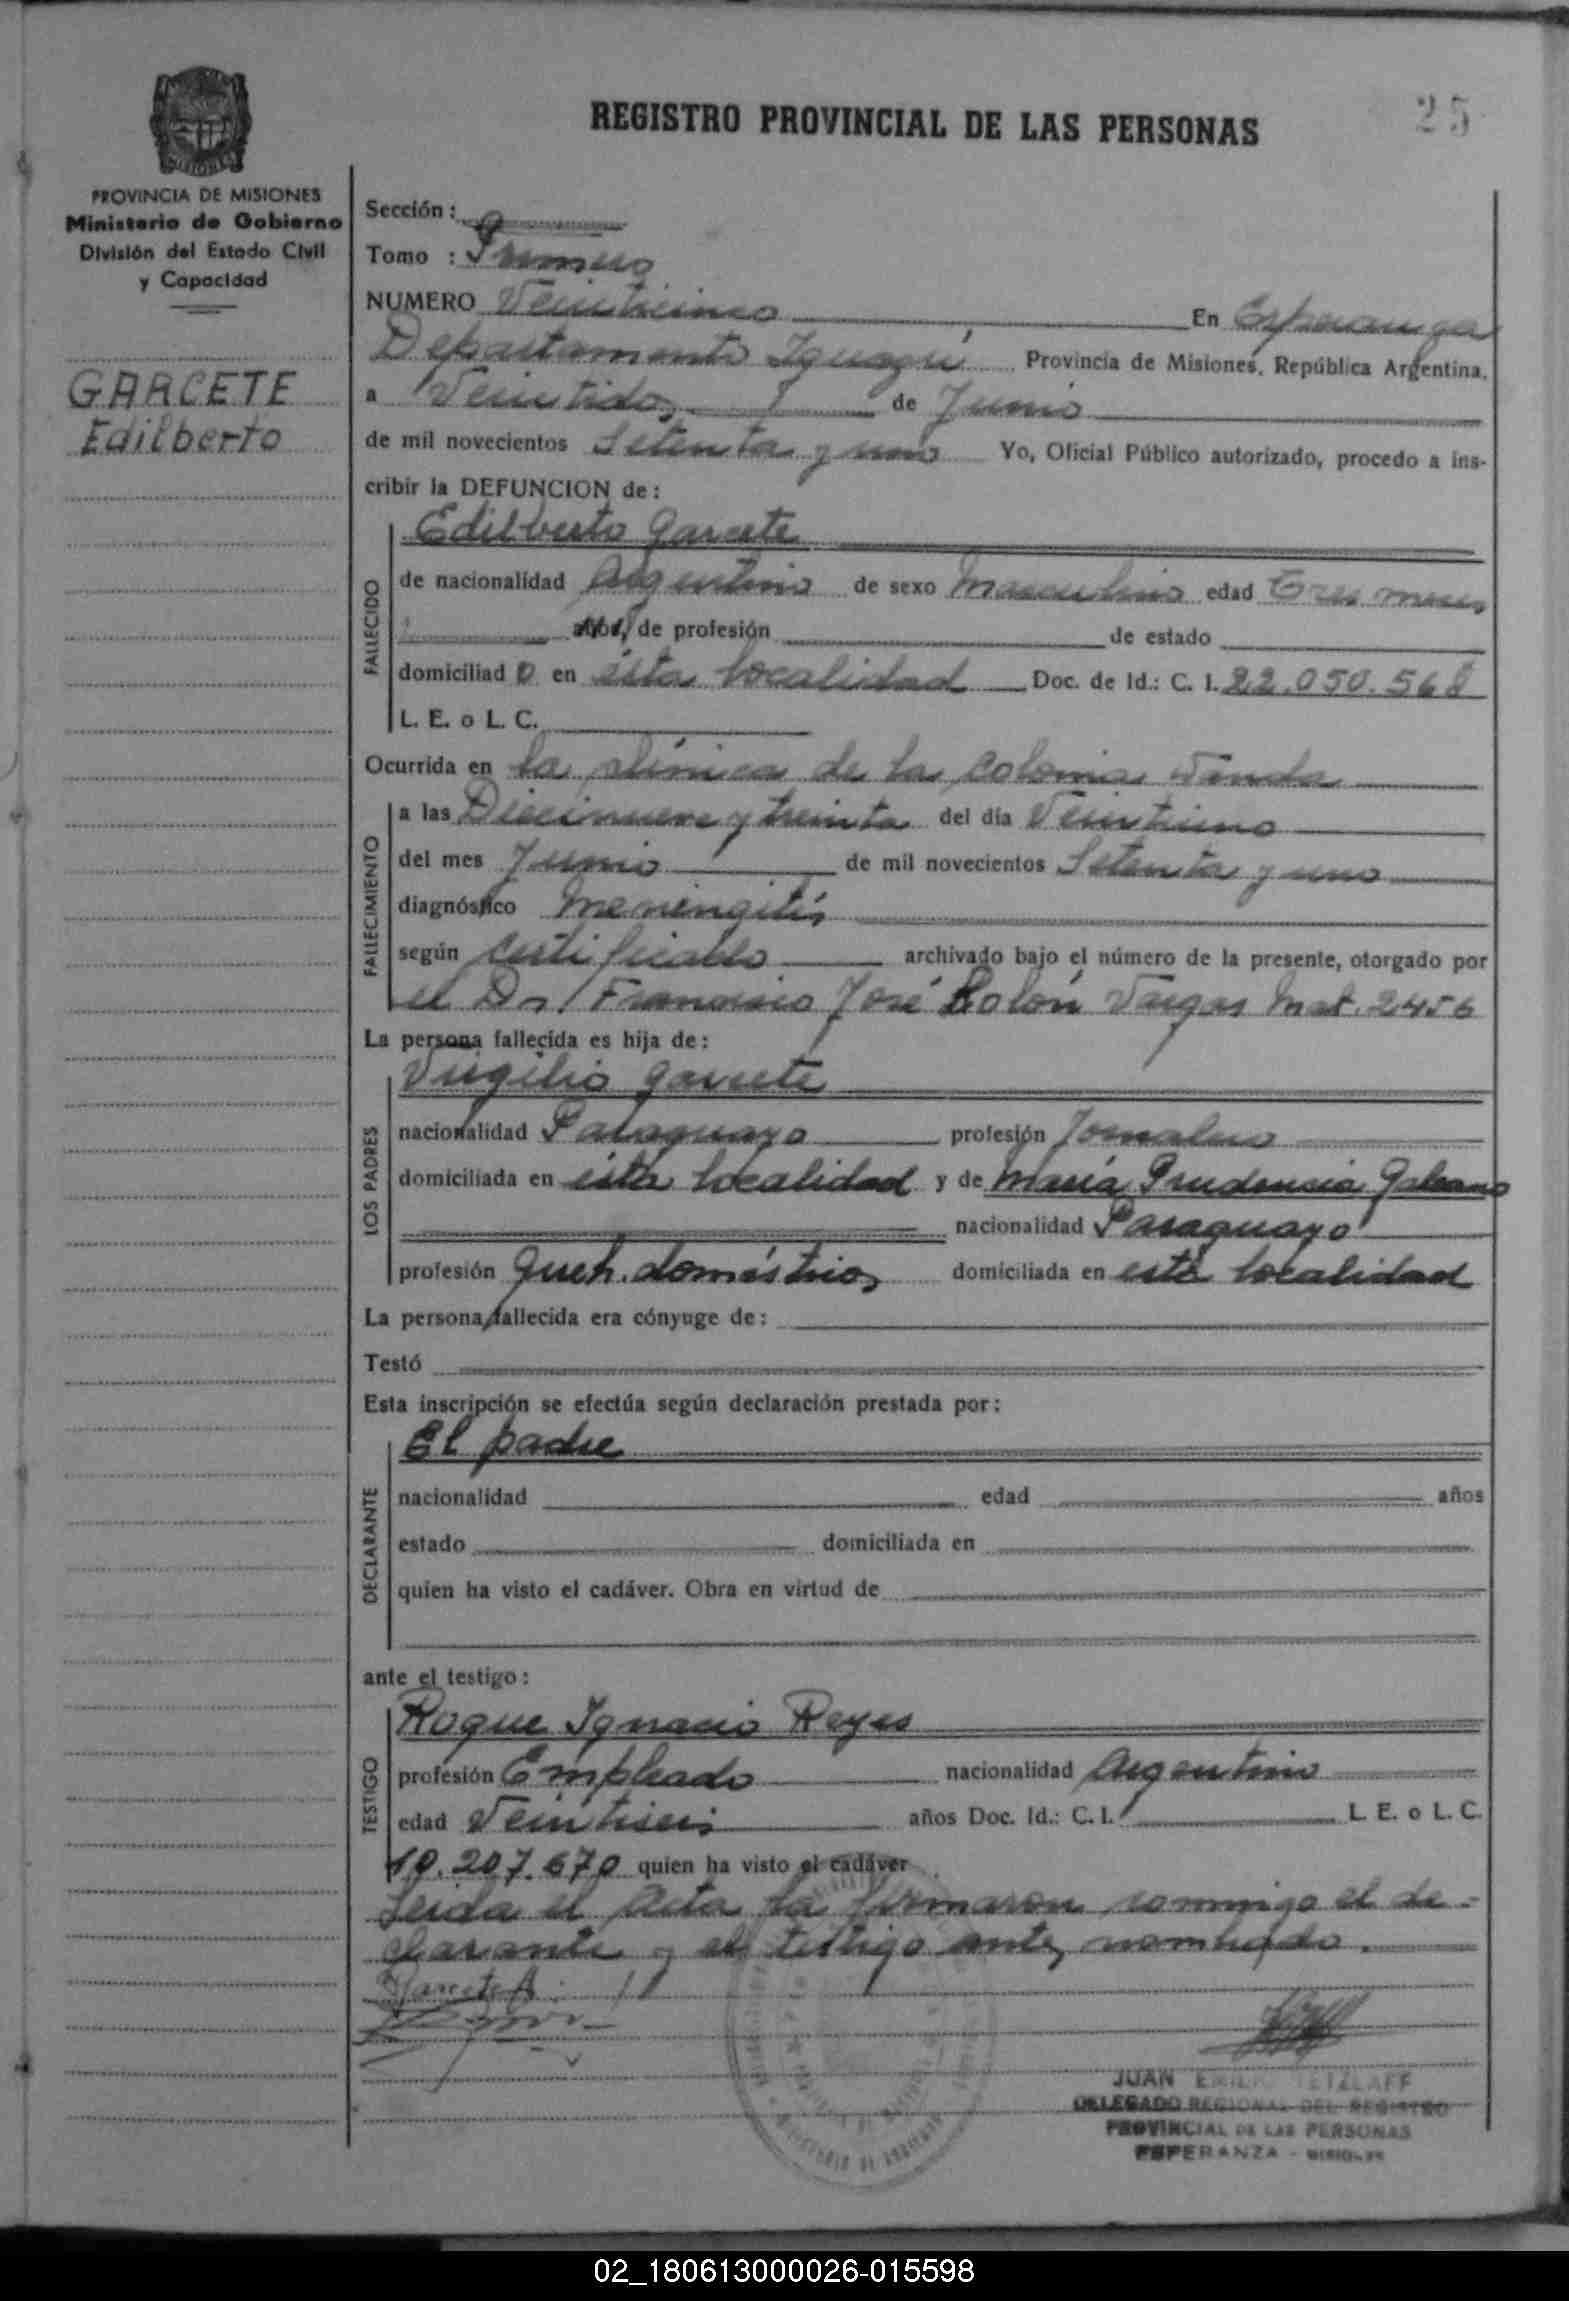 25
REGISTRO PROVINCIAL DE LAS PERSONAS
PROVINCIA DE MISIONES
Ministerio de Gobierno
División del Estado Civil
y Capacidad
GARCETE
Edilberto
Sección:
Tomo : Primero
NUMERO Veinticinco En Esperanza
Departamento Iguazú Provincia de Misiones, República Argentina,
a Veintidos de Junio
de mil novecientos Setenta y uno Yo, Oficial Público autorizado, procedo a ins-
cribir la DEFUNCION de:
Edilberto Garcete
FALLECIDO
de nacionalidad Argentino de sexo Masculino edad Tres meses
de profesión de estado
domiciliado en ésta localidad Doc. de Id.: C. I. 22.050.568
L. E. o L. C.
Ocurrida en la clínica de la colonia Wanda
FALLECIMIENTO
a las Diecinueve y treinta del día Veintiuno
del mes Junio de mil novecientos Setenta y uno
diagnóstico Meningitis
según certificado archivado bajo el número de la presente, otorgado por
el Dr. Francisco José Colón Vargas Mat. 2456
La persona fallecida es hija de:
Virgilio Garcete
LOS PADRES
nacionalidad Paraguayo profesión Jornalero
domiciliada en ésta localidad y de María Prudencia Galeano
nacionalidad Paraguayo
profesión Queh. domésticos domiciliada en esta localidad
La persona fallecida era cónyuge de:
Testó
Esta inscripción se efectúa según declaración prestada por:
El padre
DECLARANTE
nacionalidad edad años
estado domiciliada en
quien ha visto el cadáver. Obra en virtud de
ante el testigo:
Roque Ignacio Reyes
TESTIGO
profesión Empleado nacionalidad Argentino
edad Veintiseis años Doc. Id.: C. I. L. E. o L. C.
10.207.670 quien ha visto el cadáver
Leida el Acta la firmaron conmigo el de-
clarante y el testigo antes nombrado.
Garcete
JUAN EMILIO TETZLAFF
DELEGADO REGIONAL DEL REGISTRO
PROVINCIAL DE LAS PERSONAS
ESPERANZA - MISIONES
02_180613000026-015598